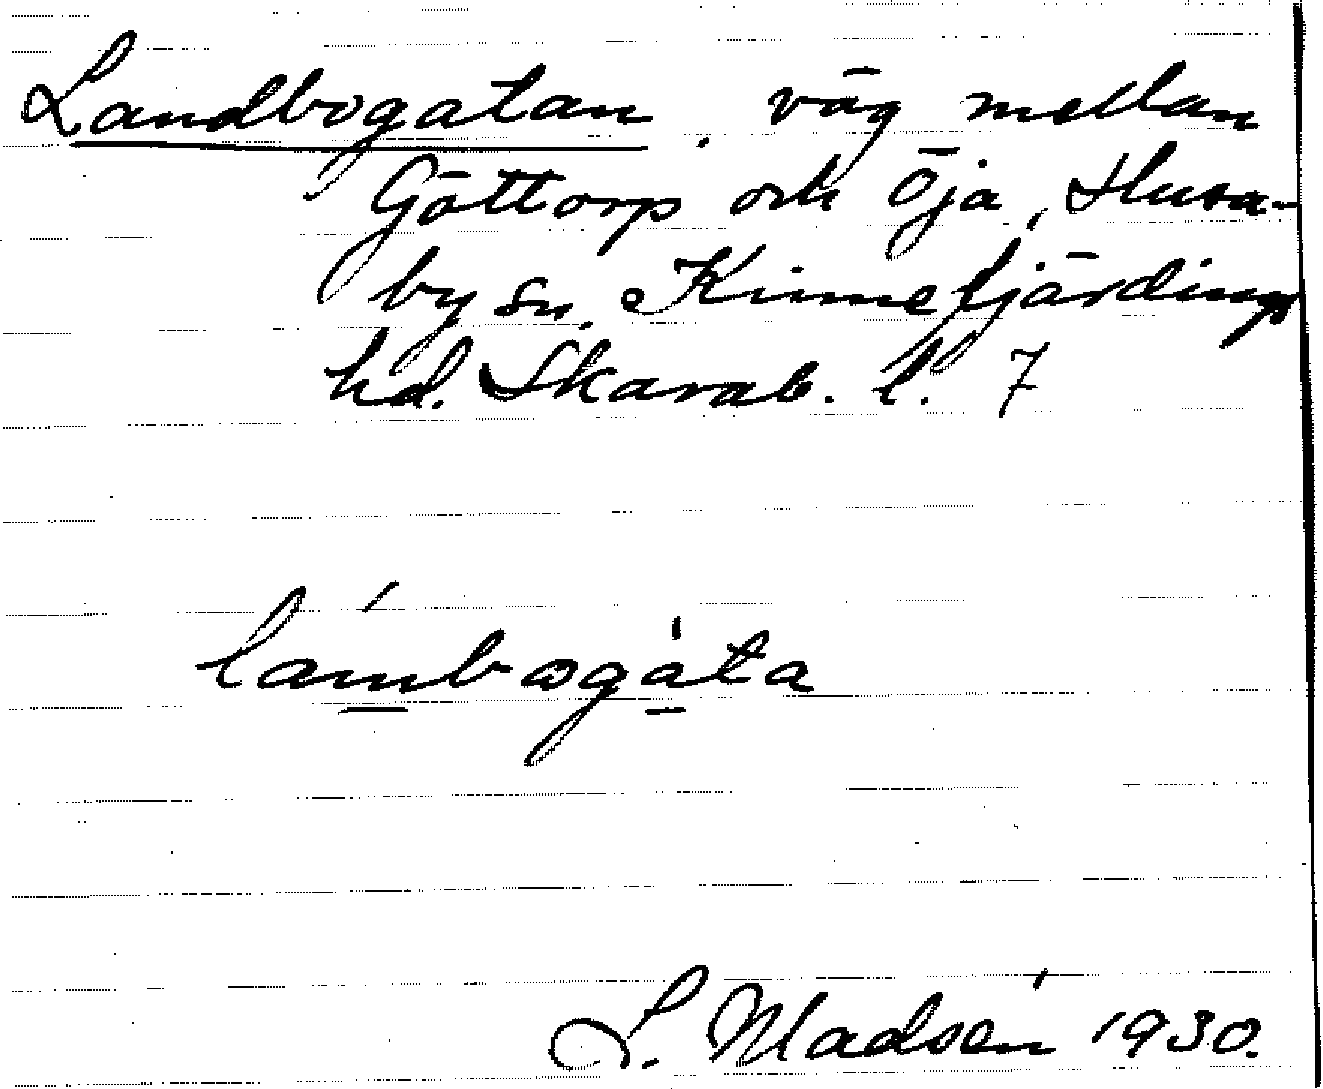 Landbogatan, väg mellan
Göttorp och Öja, Husa-
by sn. Kinnefjärdings
hd. Skarab. l. 7
lámbogáta
S. Madsén 1930.